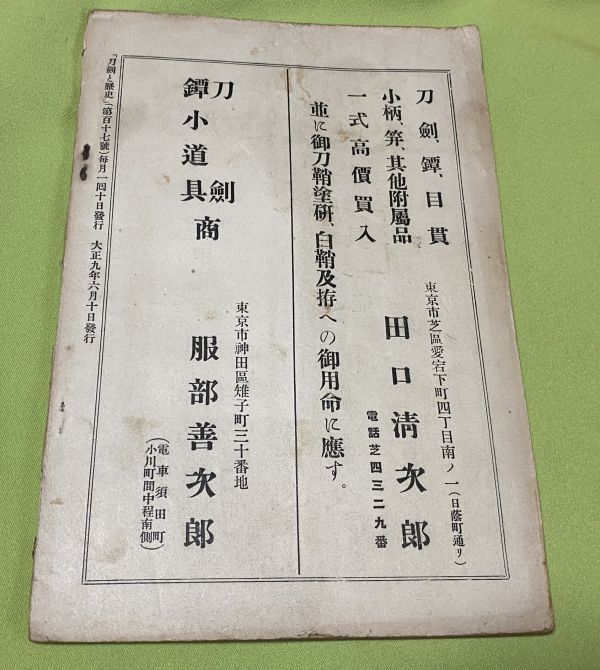 刀劍、鐔、目貫
小柄、笄、其他附屬品
一式高價買入
並に御刀鞘塗硏、白鞘及拵への御用命に應ず。
東京市芝區愛宕下町四丁目南ノ一(日蔭町通リ)
田口淸次郎
電話芝四三二九番
刀劍
鐔小道具商
東京市神田區雉子町三十番地
服部善次郎
(電車須田町
小川町間中程南側)
「刀劍と歷史」(第百十七號)每月一回十日發行 大正九年六月十日發行